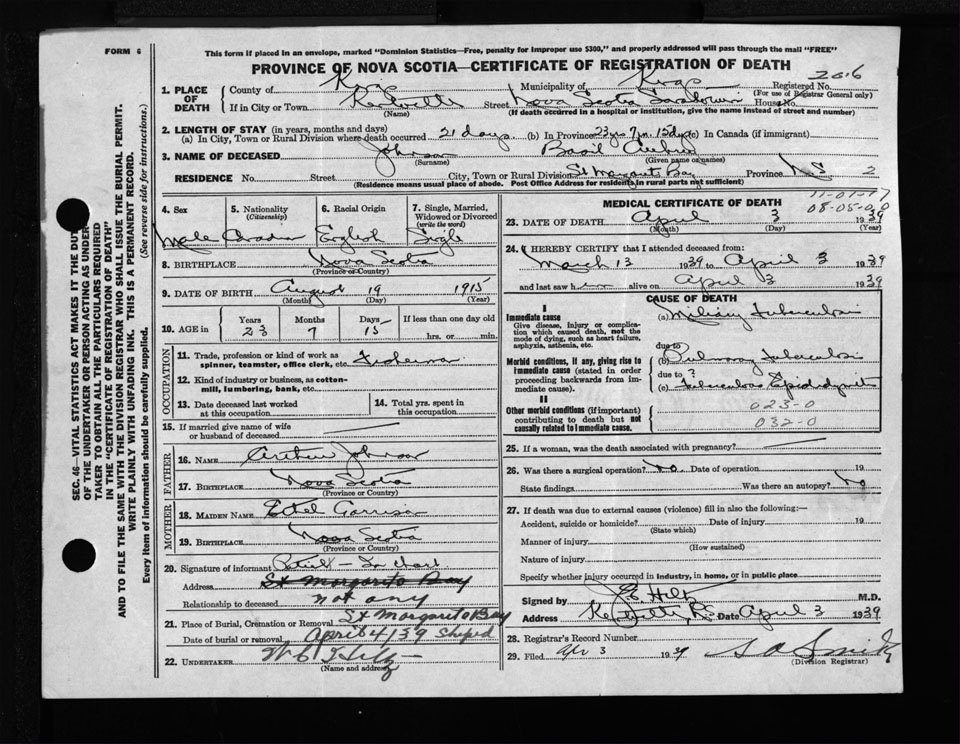 FORM 6
This form if placed in an envelope, marked "Dominion Statistics—Free, penalty for improper use $300," and properly addressed will pass through the mail "FREE"
PROVINCE OF NOVA SCOTIA—CERTIFICATE OF REGISTRATION OF DEATH
206
1. PLACE OF DEATH County of Kings Municipality of Kings Registered No.
(For use of Registrar General only)
If in City or Town Kentville Street Nova Scotia Sanatorium House No.
(Name) (If death occurred in a hospital or institution, give the name instead of street and number)
2. LENGTH OF STAY (in years, months and days)
(a) In City, Town or Rural Division where death occurred 21 days (b) In Province 23 yrs 7 m. 15 dys (c) In Canada (if immigrant)
3. NAME OF DECEASED Johnson Basil
(Surname) (Given name or names)
RESIDENCE No. Street City, Town or Rural Division St Margarets Bay Province NS 2
(Residence means usual place of abode. Post Office Address for residents in rural parts not sufficient)
4. Sex 5. Nationality (Citizenship) 6. Racial Origin 7. Single, Married, Widowed or Divorced (write the word)
Male Canadian English Single
8. BIRTHPLACE Nova Scotia
(Province or Country)
9. DATE OF BIRTH August 19 1915
(Month) (Day) (Year)
10. AGE in Years Months Days If less than one day old
23 7 15 hrs. or min.
OCCUPATION
11. Trade, profession or kind of work as spinner, teamster, office clerk, etc. Fisherman
12. Kind of industry or business, as cotton-mill, lumbering, bank, etc.
13. Date deceased last worked at this occupation 14. Total yrs. spent in this occupation
15. If married give name of wife or husband of deceased
FATHER
16. NAME Arthur Johnson
17. BIRTHPLACE Nova Scotia
(Province or Country)
MOTHER
18. MAIDEN NAME Ethel Garrison
19. BIRTHPLACE Nova Scotia
(Province or Country)
20. Signature of informant
Address St Margarets Bay
Relationship to deceased not any
21. Place of Burial, Cremation or Removal St Margarets Bay
Date of burial or removal April 4/39 Shiped
22. UNDERTAKER
(Name and address)
MEDICAL CERTIFICATE OF DEATH
11-01-17
08-05-0
23. DATE OF DEATH April 3 1939
(Month) (Day) (Year)
24. I HEREBY CERTIFY that I attended deceased from:
March 13 1939 to April 3 1939
and last saw him alive on April 3 1939
CAUSE OF DEATH
I
Immediate cause (a) Miliary Tuberculosis
Give disease, injury or complication which caused death, not the mode of dying, such as heart failure, asphyxia, asthenia, etc.
due to
Morbid conditions, if any, giving rise to immediate cause (stated in order proceeding backwards from immediate cause). (b) Pulmonary Tuberculosis
due to ?
(c) Tuberculous Epididymitis
II
Other morbid conditions (if important) contributing to death but not causally related to immediate cause.
023-0
032-0
25. If a woman, was the death associated with pregnancy?
26. Was there a surgical operation? No Date of operation 19
State findings Was there an autopsy? No
27. If death was due to external causes (violence) fill in also the following:—
Accident, suicide or homicide? Date of injury 19
(State which)
Manner of injury
(How sustained)
Nature of injury
Specify whether injury occurred in industry, in home, or in public place
Signed by Hiltz M.D.
Address Kentville N.S. Date April 3 1939
28. Registrar's Record Number
29. Filed Apr 3 1939 Smith
(Division Registrar)
SEC. 46—VITAL STATISTICS ACT MAKES IT THE DUTY
OF THE UNDERTAKER OR PERSON ACTING AS UNDER-
TAKER TO OBTAIN ALL THE PARTICULARS REQUIRED
IN THE "CERTIFICATE OF REGISTRATION OF DEATH"
AND TO FILE THE SAME WITH THE DIVISION REGISTRAR WHO SHALL ISSUE THE BURIAL PERMIT.
WRITE PLAINLY WITH UNFADING INK. THIS IS A PERMANENT RECORD.
Every item of information should be carefully supplied. (See reverse side for instructions.)